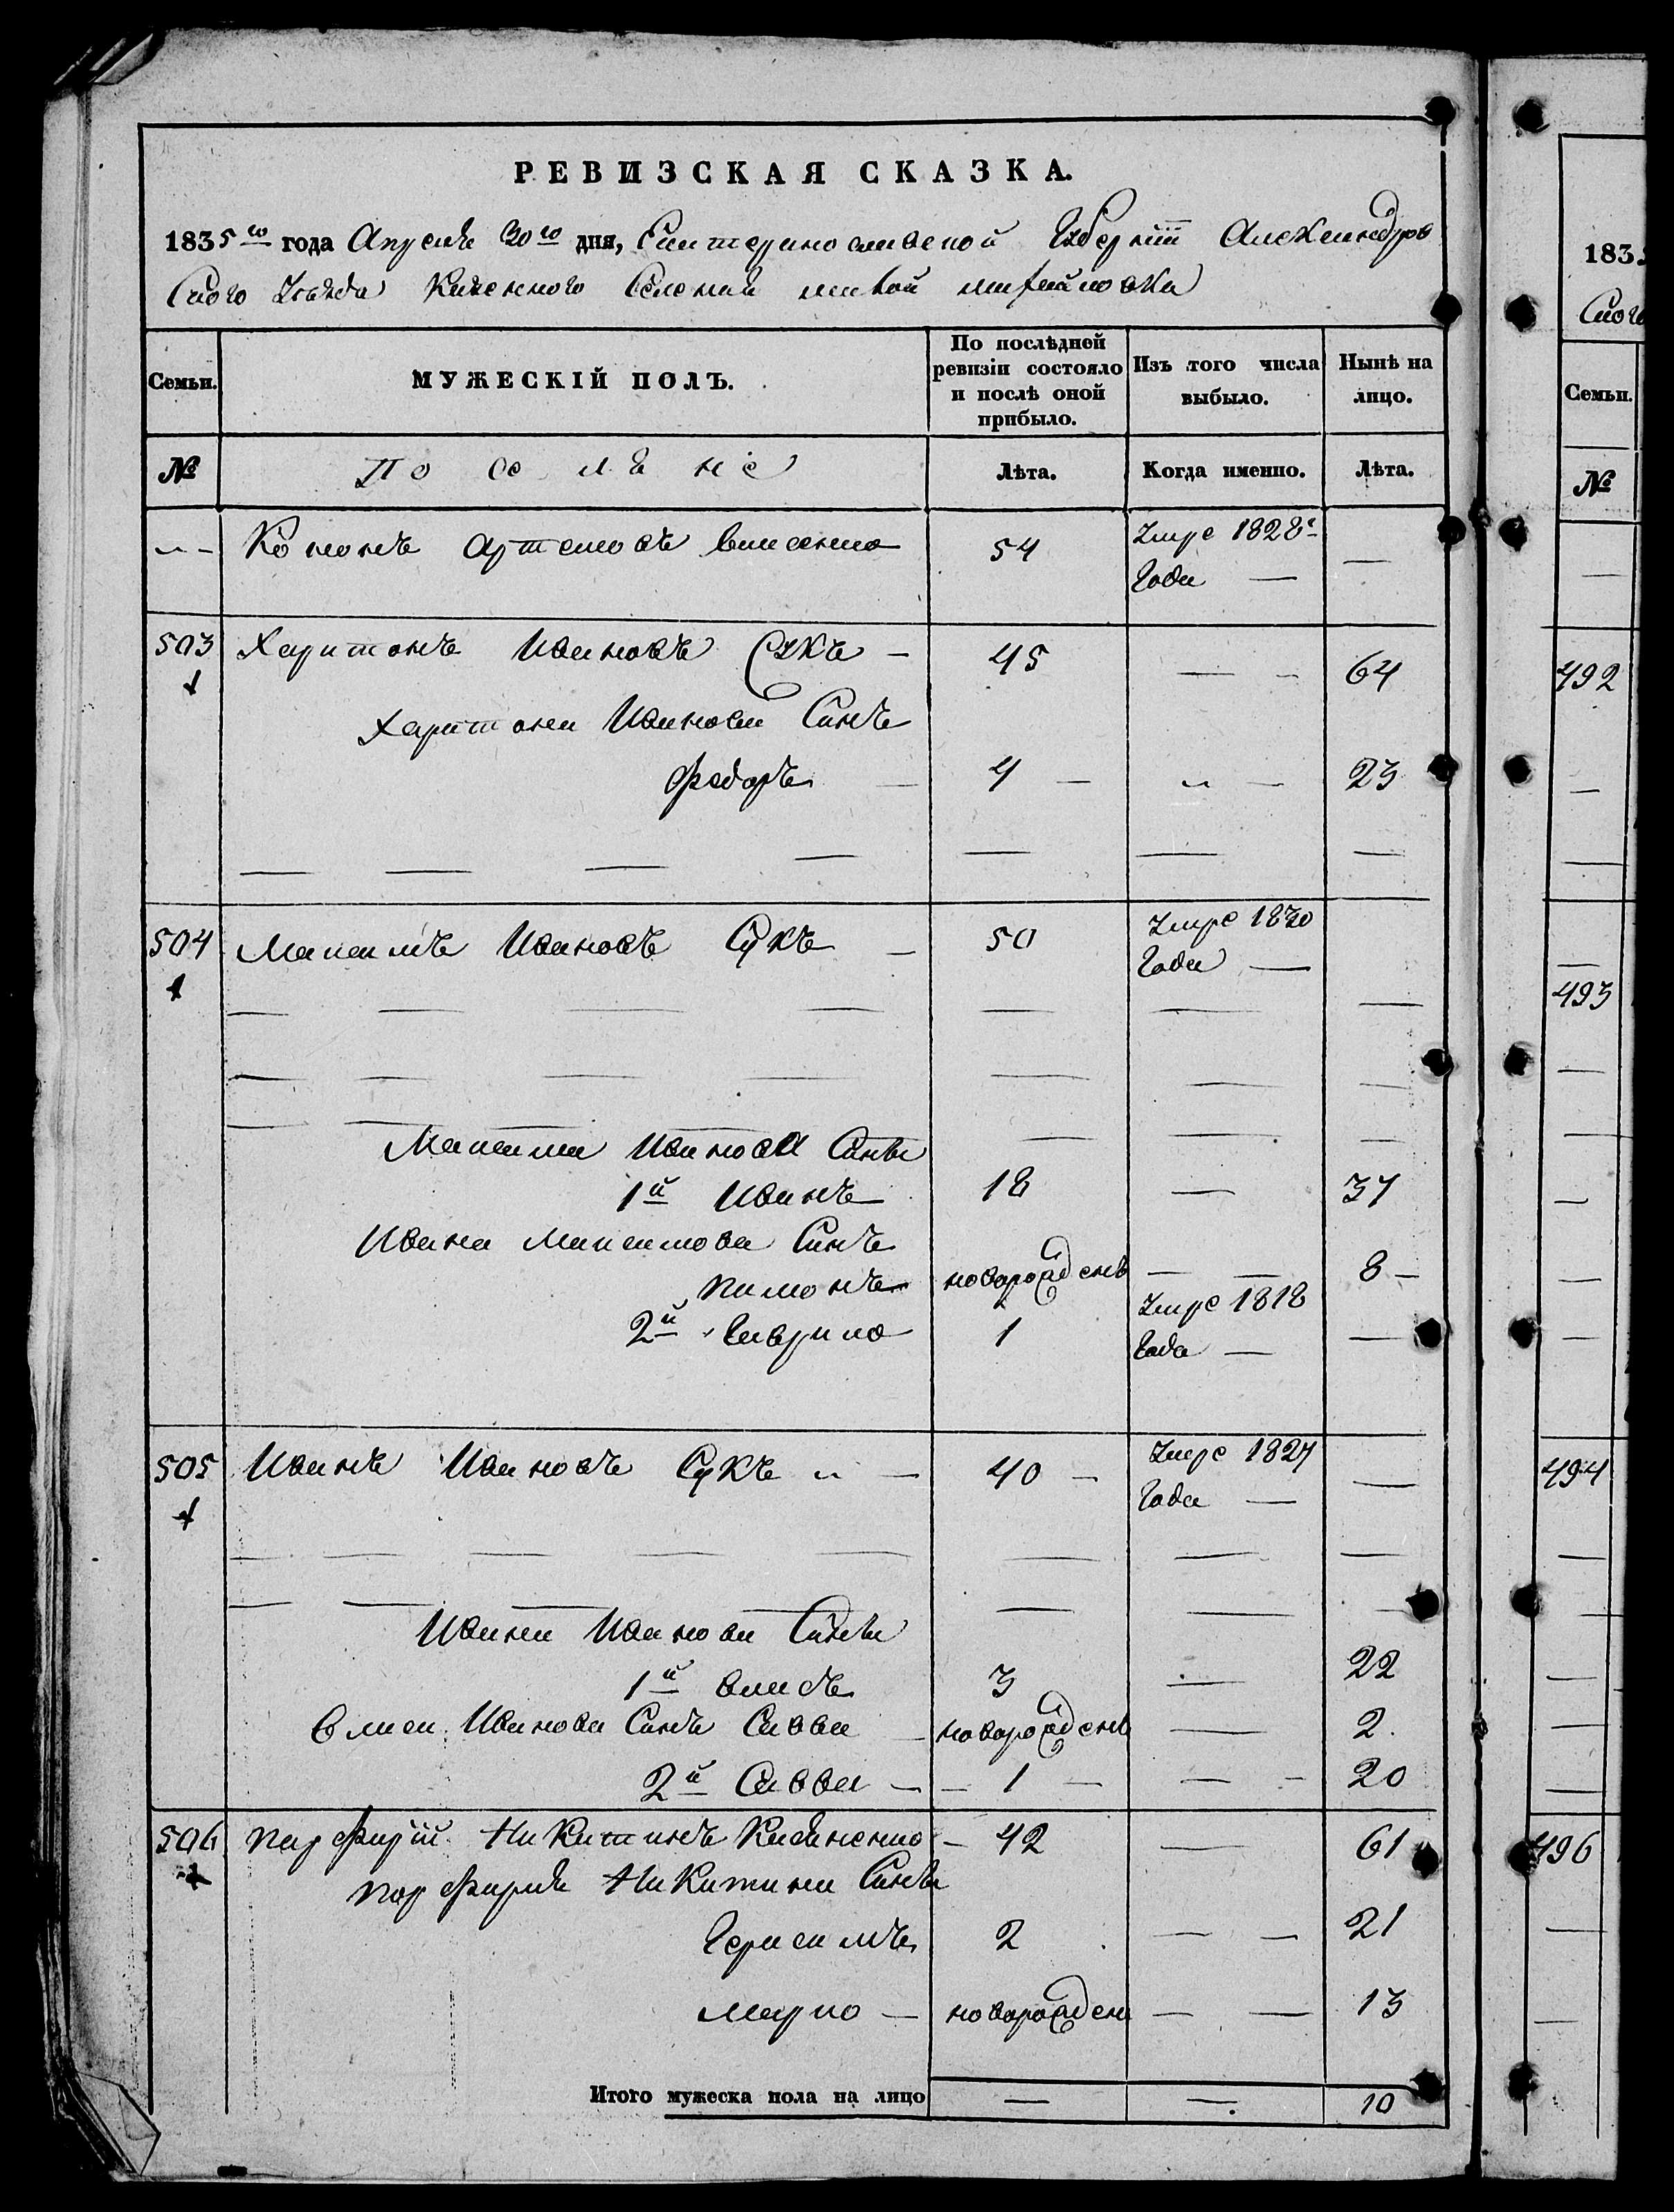 РЕВИЗСКАЯ СКАЗКА.
1835го года Апреля 30го дня, Екатеринославской Губернiи Александров
ского Уезда Казенного Селения малой михайловки
Семьи. МУЖЕСКІЙ ПОЛЪ. По послѣдней ревизіи состояло и послѣ оной прибыло. Изъ того числа выбыло. Нынѣ на лицо.
№ Поселяне Лѣта. Когда именно. Лѣта.
Кононъ Артемовъ 54 Умре 1828г
Года —
503 Харитонъ Ивановъ Сукъ — 45 — 64
Харитона Иванова Синъ
Федоръ 4 — 23
504 Максимъ Ивановъ Сукъ — 50 Умре 1830
Года —
Максима Иванова Сины
1й Иванъ 18 — 37
Ивана Максимова Синъ
пимонъ новорожденъ — 8 –
2й Гаврило 1 Умре 1818
Года —
505 Иванъ Ивановъ Сукъ — 40 – Умре 1827
Года —
Ивана Иванова Сины
1й власъ 3 — 22
власа Иванова Синъ Савва новорожденъ — 2.
2й Савва — 1 — 20
506 парфирiй Никитинъ — 42 — 61
порфирiя Никитина Сины
Герасимъ 2 — 21
марко — новорожден — 13
Итого мужеска пола на лицо — — 10
183
Ского
Семьи.
№
492
493
494
496